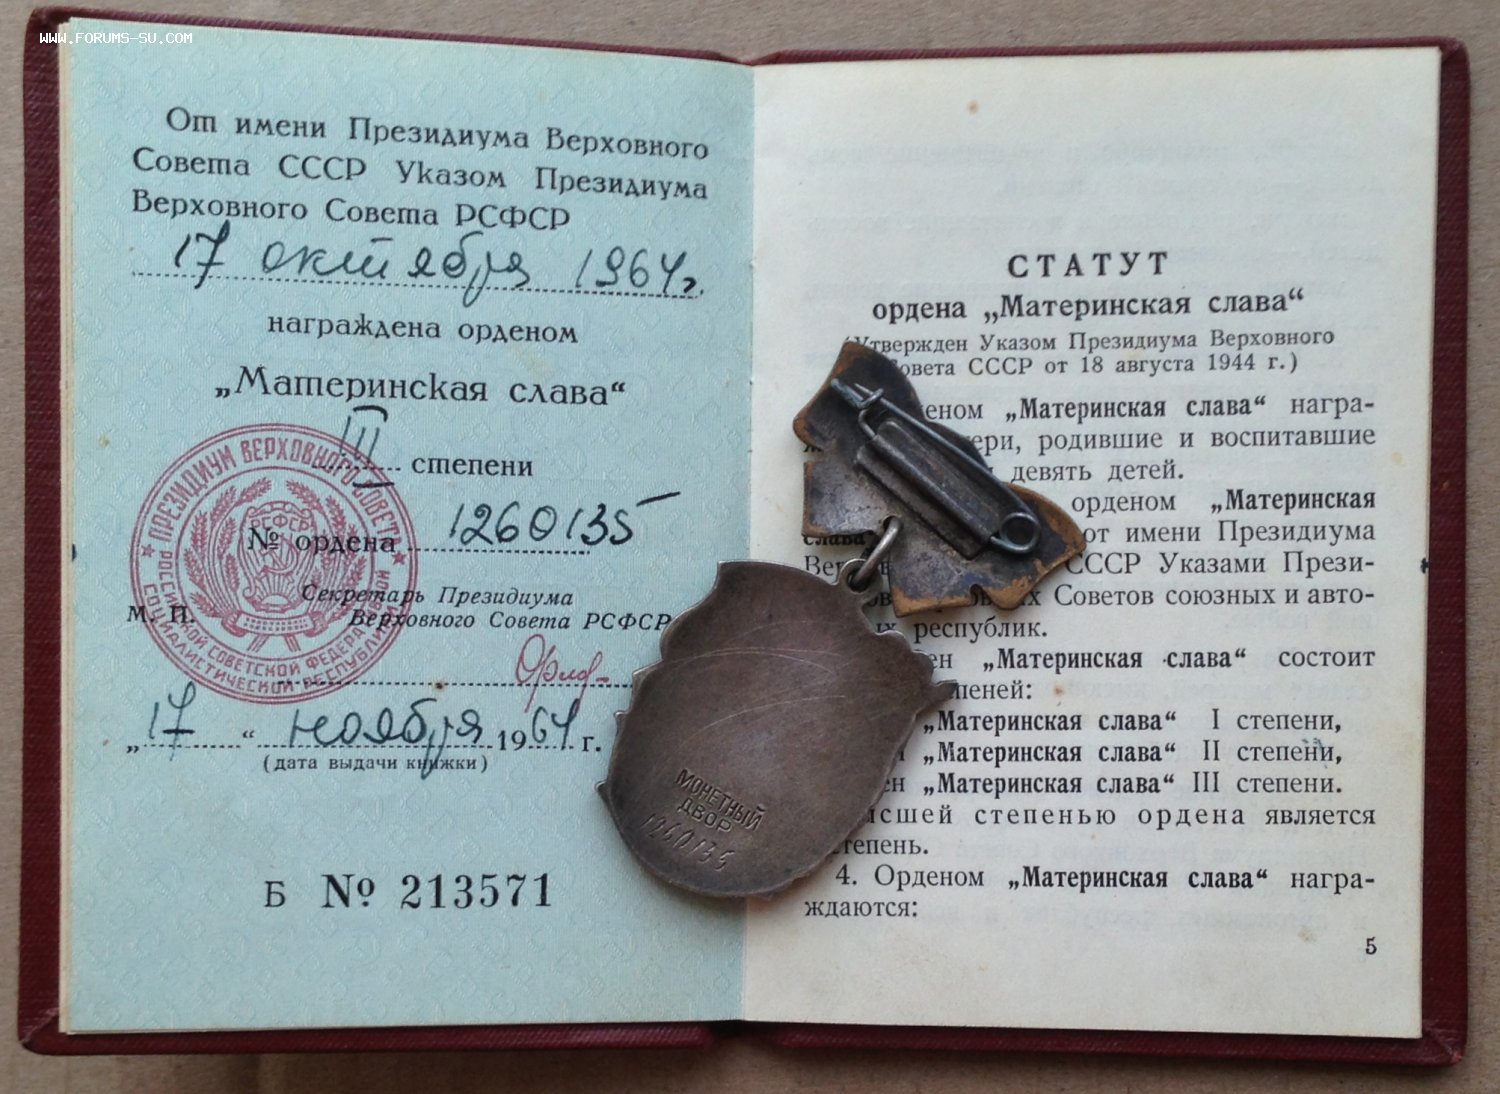 www.FORUMS-SU.COM
От имени Президиума Верховного
Совета СССР Указом Президиума
Верховного Совета РСФСР
17 октября 1964г.
награждена орденом
„Материнская слава“
III степени
№ ордена 1260135
Секретарь Президиума
М. П. Верховного Совета РСФСР
„17“ ноября 1964 г.
(дата выдачи книжки)
Б № 213571
ПРЕЗИДИУМ ВЕРХОВНОГО СОВЕТА
РОССИЙСКОЙ СОВЕТСКОЙ ФЕДЕРАТИВНОЙ
СОЦИАЛИСТИЧЕСКОЙ РЕСПУБЛИКИ
РСФСР
МОНЕТНЫЙ
ДВОР
1260135
СТАТУТ
ордена „Материнская слава“
(Утвержден Указом Президиума Верховного
Совета СССР от 18 августа 1944 г.)
„Материнская слава“ награ-
родившие и воспитавшие
девять детей.
орденом „Материнская
слава“ от имени Президиума
СССР Указами Прези-
Советов союзных и авто-
республик.
„Материнская слава“ состоит
„Материнская слава“ I степени,
„Материнская слава“ II степени,
„Материнская слава“ III степени.
степенью ордена является
степень.
4. Орденом „Материнская слава“ награ-
ждаются:
5